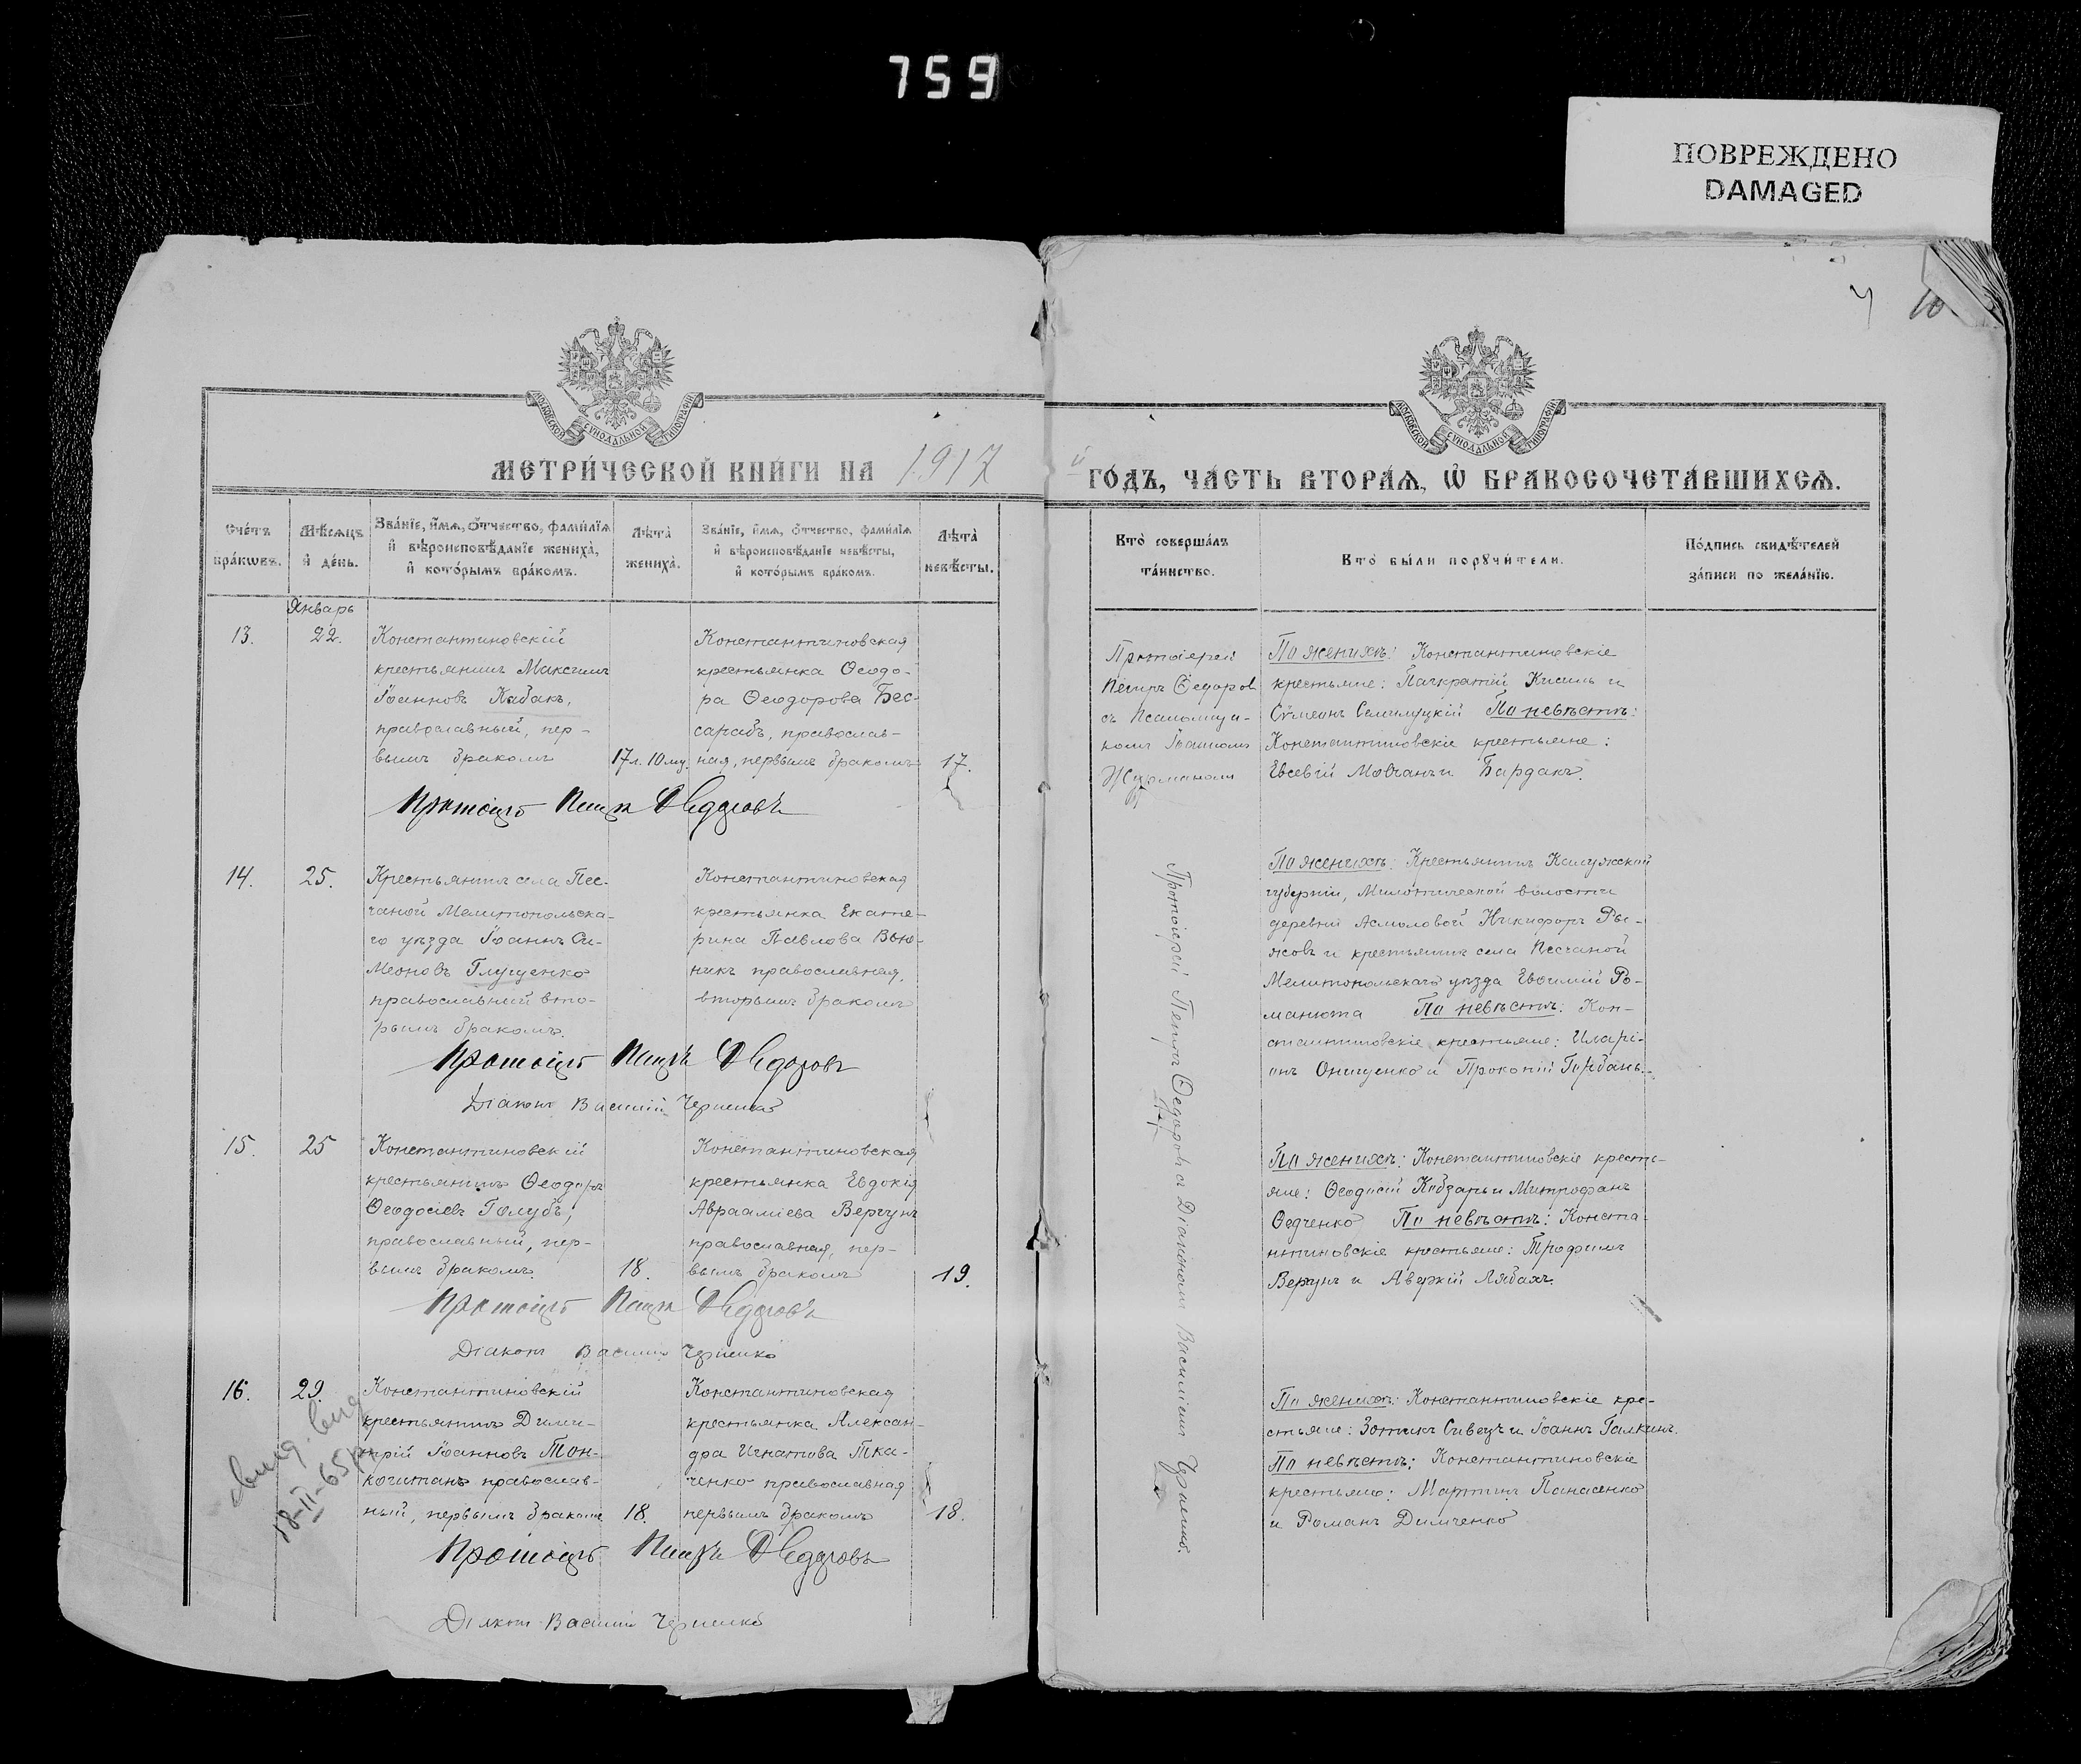 759
ПОВРЕЖДЕНО
DAMAGED
10
МОСКОВСКОЙ СѴНОДАЛЬНОЙ ТИПОГРАФІИ
МЕТРИ́ЧЕСКОЙ КНИ́ГИ НА 1917
Сче́тъ бра́кѡвъ.
Мѣ́сѧцъ и҆ де́нь.
Зва́нїе, и҆́мѧ, ѻ҆́тчество, фами́лїѧ и҆ вѣроисповѣ́данїе жениха̀, и҆ кото́рымъ бра́комъ.
Лѣ́та̀ жениха̀.
Зва́нїе, и҆́мѧ, ѻ҆́тчество, фами́лїѧ и҆ вѣроисповѣ́данїе невѣ́сты, и҆ кото́рымъ бра́комъ.
Лѣ́та̀ невѣ́сты.
Январь
13.
22.
Константиновскій
крестьянинъ Максимъ
Іоанновъ Кабакъ,
православный, пер-
вымъ бракомъ
17 л. 10 м.
Константиновская
крестьянка Ѳеодо-
ра Ѳеодорова Бес-
сарабъ, православ-
ная, первымъ бракомъ
17.
Протоіер Петръ Ѳедоровъ
14.
25.
Крестьянинъ села Пес-
чаной Мелитопольска-
го уѣзда Іоаннъ Си-
меоновъ Глущенко
православный вто-
рымъ бракомъ.
Константиновская
крестьянка Екате-
рина Павлова Вью-
никъ православная,
вторымъ бракомъ
Протоіер Петръ Ѳедоровъ
Діаконъ Василій Черненко
15.
25
Константиновскій
крестьянинъ Ѳеодоръ
Ѳеодосіевъ Голубъ,
православный, пер-
вымъ бракомъ.
18.
Константиновская
крестьянка Евдокія
Авраамиева Вергунъ
православная, пер-
вымъ бракомъ
19.
Протоіер Петръ Ѳедоровъ
Діаконъ Василій Черненко
16.
29.
Константиновскій
крестьянинъ Дими-
трій Іоанновъ Тон-
кошитанъ православ-
ный, первымъ бракомъ
18.
Константиновская
крестьянка Алексан-
дра Игнатова Тка-
ченко православная
первымъ бракомъ
18.
18-II-65 р.
Протоіер Петръ Ѳедоровъ
Діаконъ Василій Черненко
МОСКОВСКОЙ СѴНОДАЛЬНОЙ ТИПОГРАФІИ
й ГО́ДЪ, ЧА́СТЬ ВТОРА́Ѧ, Ѽ БРАКОСОЧЕТА́ВШИХСѦ.
Кто̀ соверша́лъ та́инство.
Кто̀ бы́ли порꙋчи́тели.
По́дпись свидѣ́телей за́писи по жела́нїю.
Протоіерей
Петръ Ѳедоровъ
съ псаломщи-
комъ Іоанномъ
По женихѣ: Константиновскіе
крестьяне: Панкратій Кисиль и
Сѵмеонъ Селимуцкій По невѣстѣ:
Константиновскіе крестьяне:
Евсевій Мовчанъ и Бардакъ.
Протоіерей Петръ Ѳедоровъ съ Діакономъ Василіемъ Черненко.
По женихѣ: Крестьянинъ Калужской
губерніи, Милотической волости
деревни Асмоловой Никифоръ Ры-
жовъ и крестьянинъ села Песчаной
Мелитопольскаго уѣзда Евѳимій Ро-
манюта По невѣстѣ: Кон-
стантиновскіе крестьяне: Иларі-
онъ Онищенко и Прокопій Горбань.
По женихѣ: Константиновскіе кресть-
яне: Ѳеодосій Кобзарь и Митрофанъ
Ѳедченко По невѣстѣ: Конста-
нтиновскіе крестьяне: Трофимъ
Вергунъ и Аверкій Лябахъ.
По женихѣ: Константиновскіе кре-
стьяне: Зотикъ Сивецъ и Іоаннъ Галкинъ.
По невѣстѣ: Константиновскіе
крестьяне: Мартинъ Панасенко
и Романъ Димченко